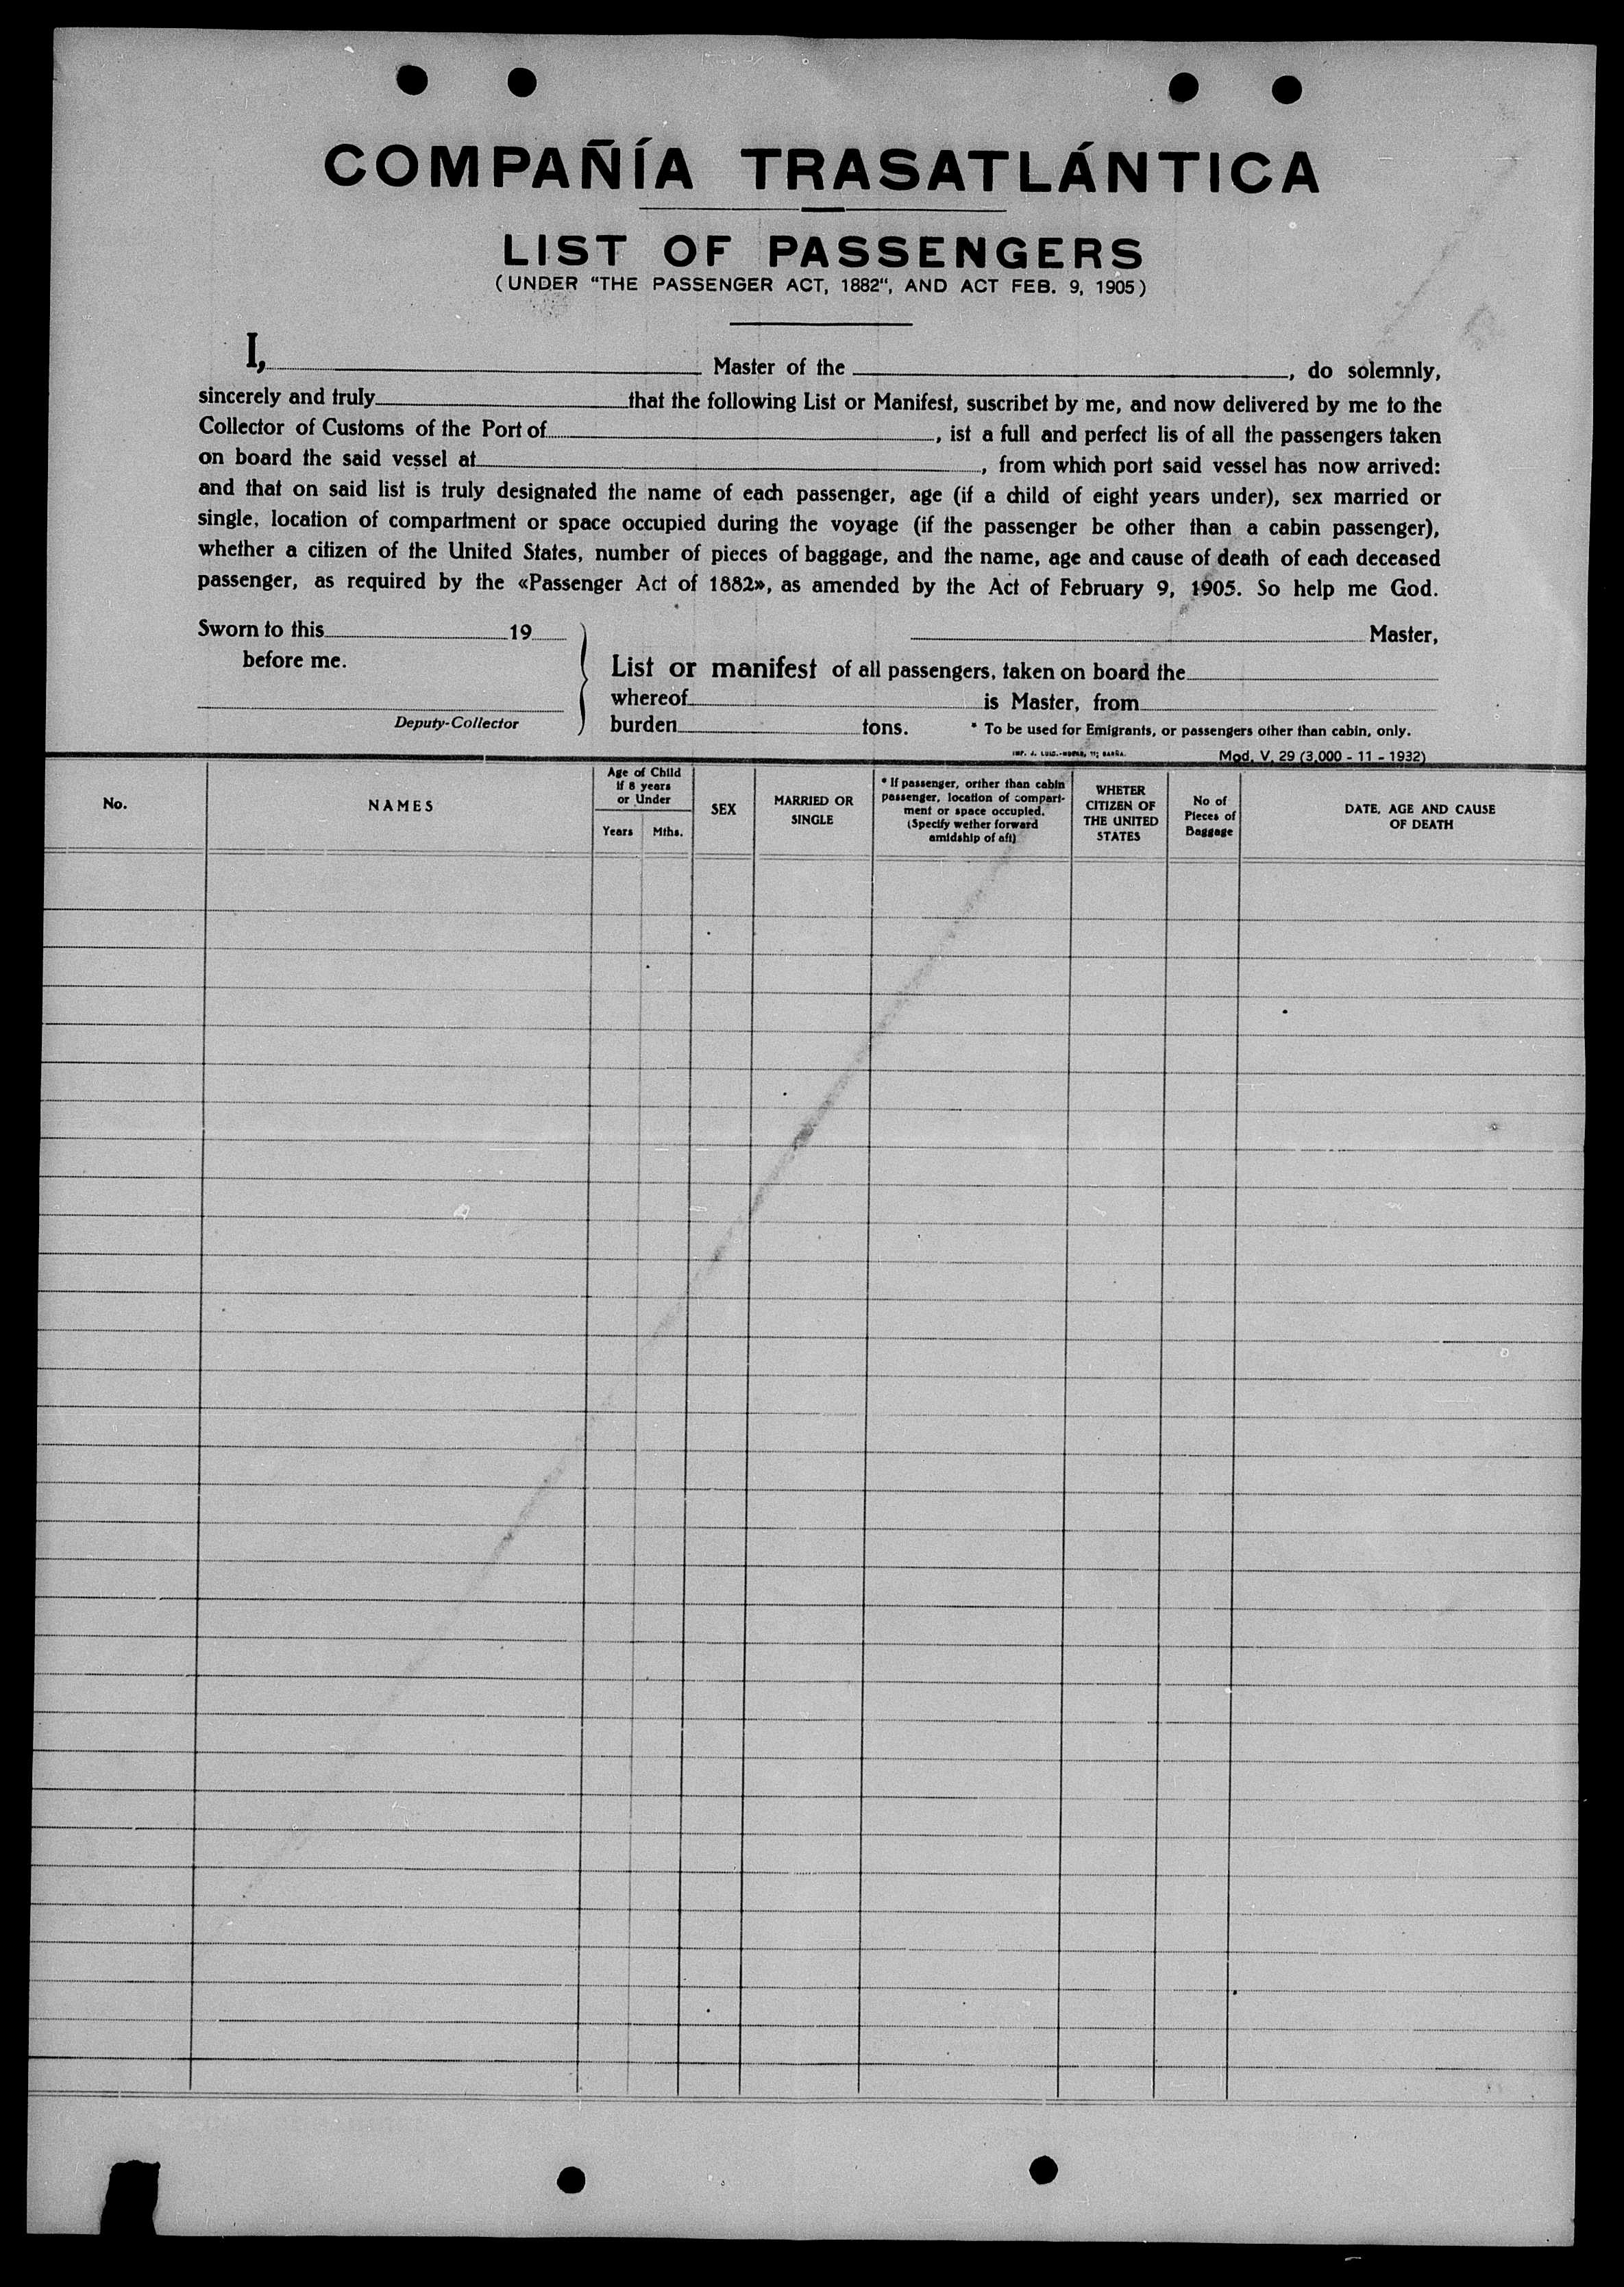 COMPAÑÍA TRASATLÁNTICA
LIST OF PASSENGERS
(UNDER “THE PASSENGER ACT, 1882“, AND ACT FEB. 9, 1905)
I, Master of the , do solemnly,
sincerely and truly that the following List or Manifest, suscribet by me, and now delivered by me to the
Collector of Customs of the Port of , ist a full and perfect lis of all the passengers taken
on board the said vessel at , from which port said vessel has now arrived:
and that on said list is truly designated the name of each passenger, age (if a child of eight years under), sex married or
single, location of compartment or space occupied during the voyage (if the passenger be other than a cabin passenger),
whether a citizen of the United States, number of pieces of baggage, and the name, age and cause of death of each deceased
passenger, as required by the «Passenger Act of 1882», as amended by the Act of February 9, 1905. So help me God.
Sworn to this 19
before me.
Deputy-Collector
Master,
List or manifest of all passengers, taken on board the
whereof is Master, from
burden tons. * To be used for Emigrants, or passengers other than cabin, only.
Mod. V. 29 (3,000 - 11 - 1932)
No.
NAMES
Age of Child
if 8 years
or Under
Years Mths.
SEX
MARRIED OR
SINGLE
* If passenger, orther than cabin
passenger, location of compart-
ment or space occupied.
(Specify wether forward
amidship of aft)
WHETER
CITIZEN OF
THE UNITED
STATES
No of
Pieces of
Baggage
DATE, AGE AND CAUSE
OF DEATH